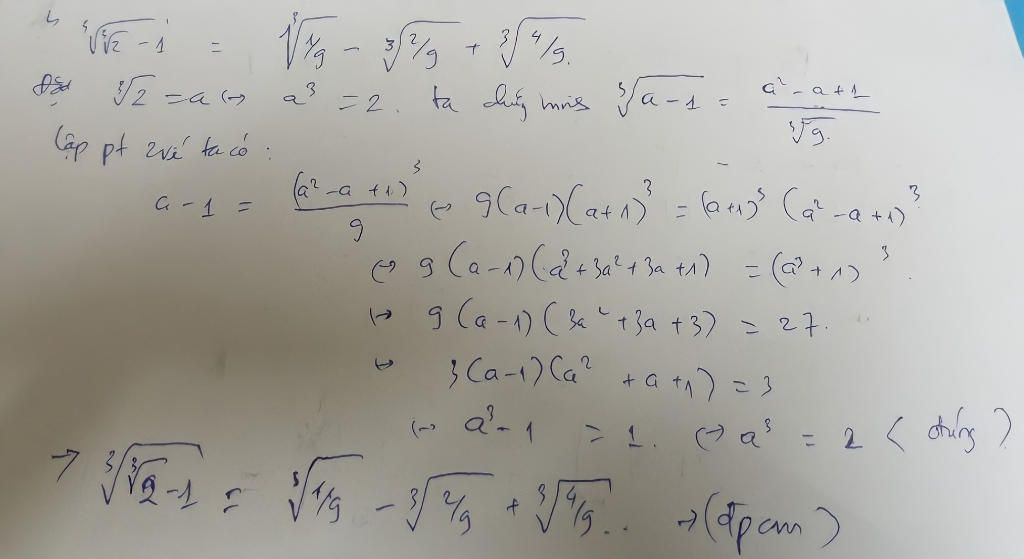 ∛(∛2 - 1) = ∛(1/9) - ∛(2/9) + ∛(4/9).
Đặt ∛2 = a ↔ a³ = 2. ta chứng minh ∛(a-1) = (a² - a + 1)/∛9.
Lập pt 2 vế ta có :
a - 1 = (a² - a + 1)³/9 ↔ 9(a-1)(a+1)³ = (a+1)³ (a² - a + 1)³
↔ 9(a-1)(a³ + 3a² + 3a + 1) = (a³ + 1)³.
↔ 9(a-1)(3a² + 3a + 3) = 27.
↔ 3(a-1)(a² + a + 1) = 3
↔ a³ - 1 = 1. ↔ a³ = 2 (đúng)
→ ∛(∛2 - 1) = ∛(1/9) - ∛(2/9) + ∛(4/9).. → (đpcm)